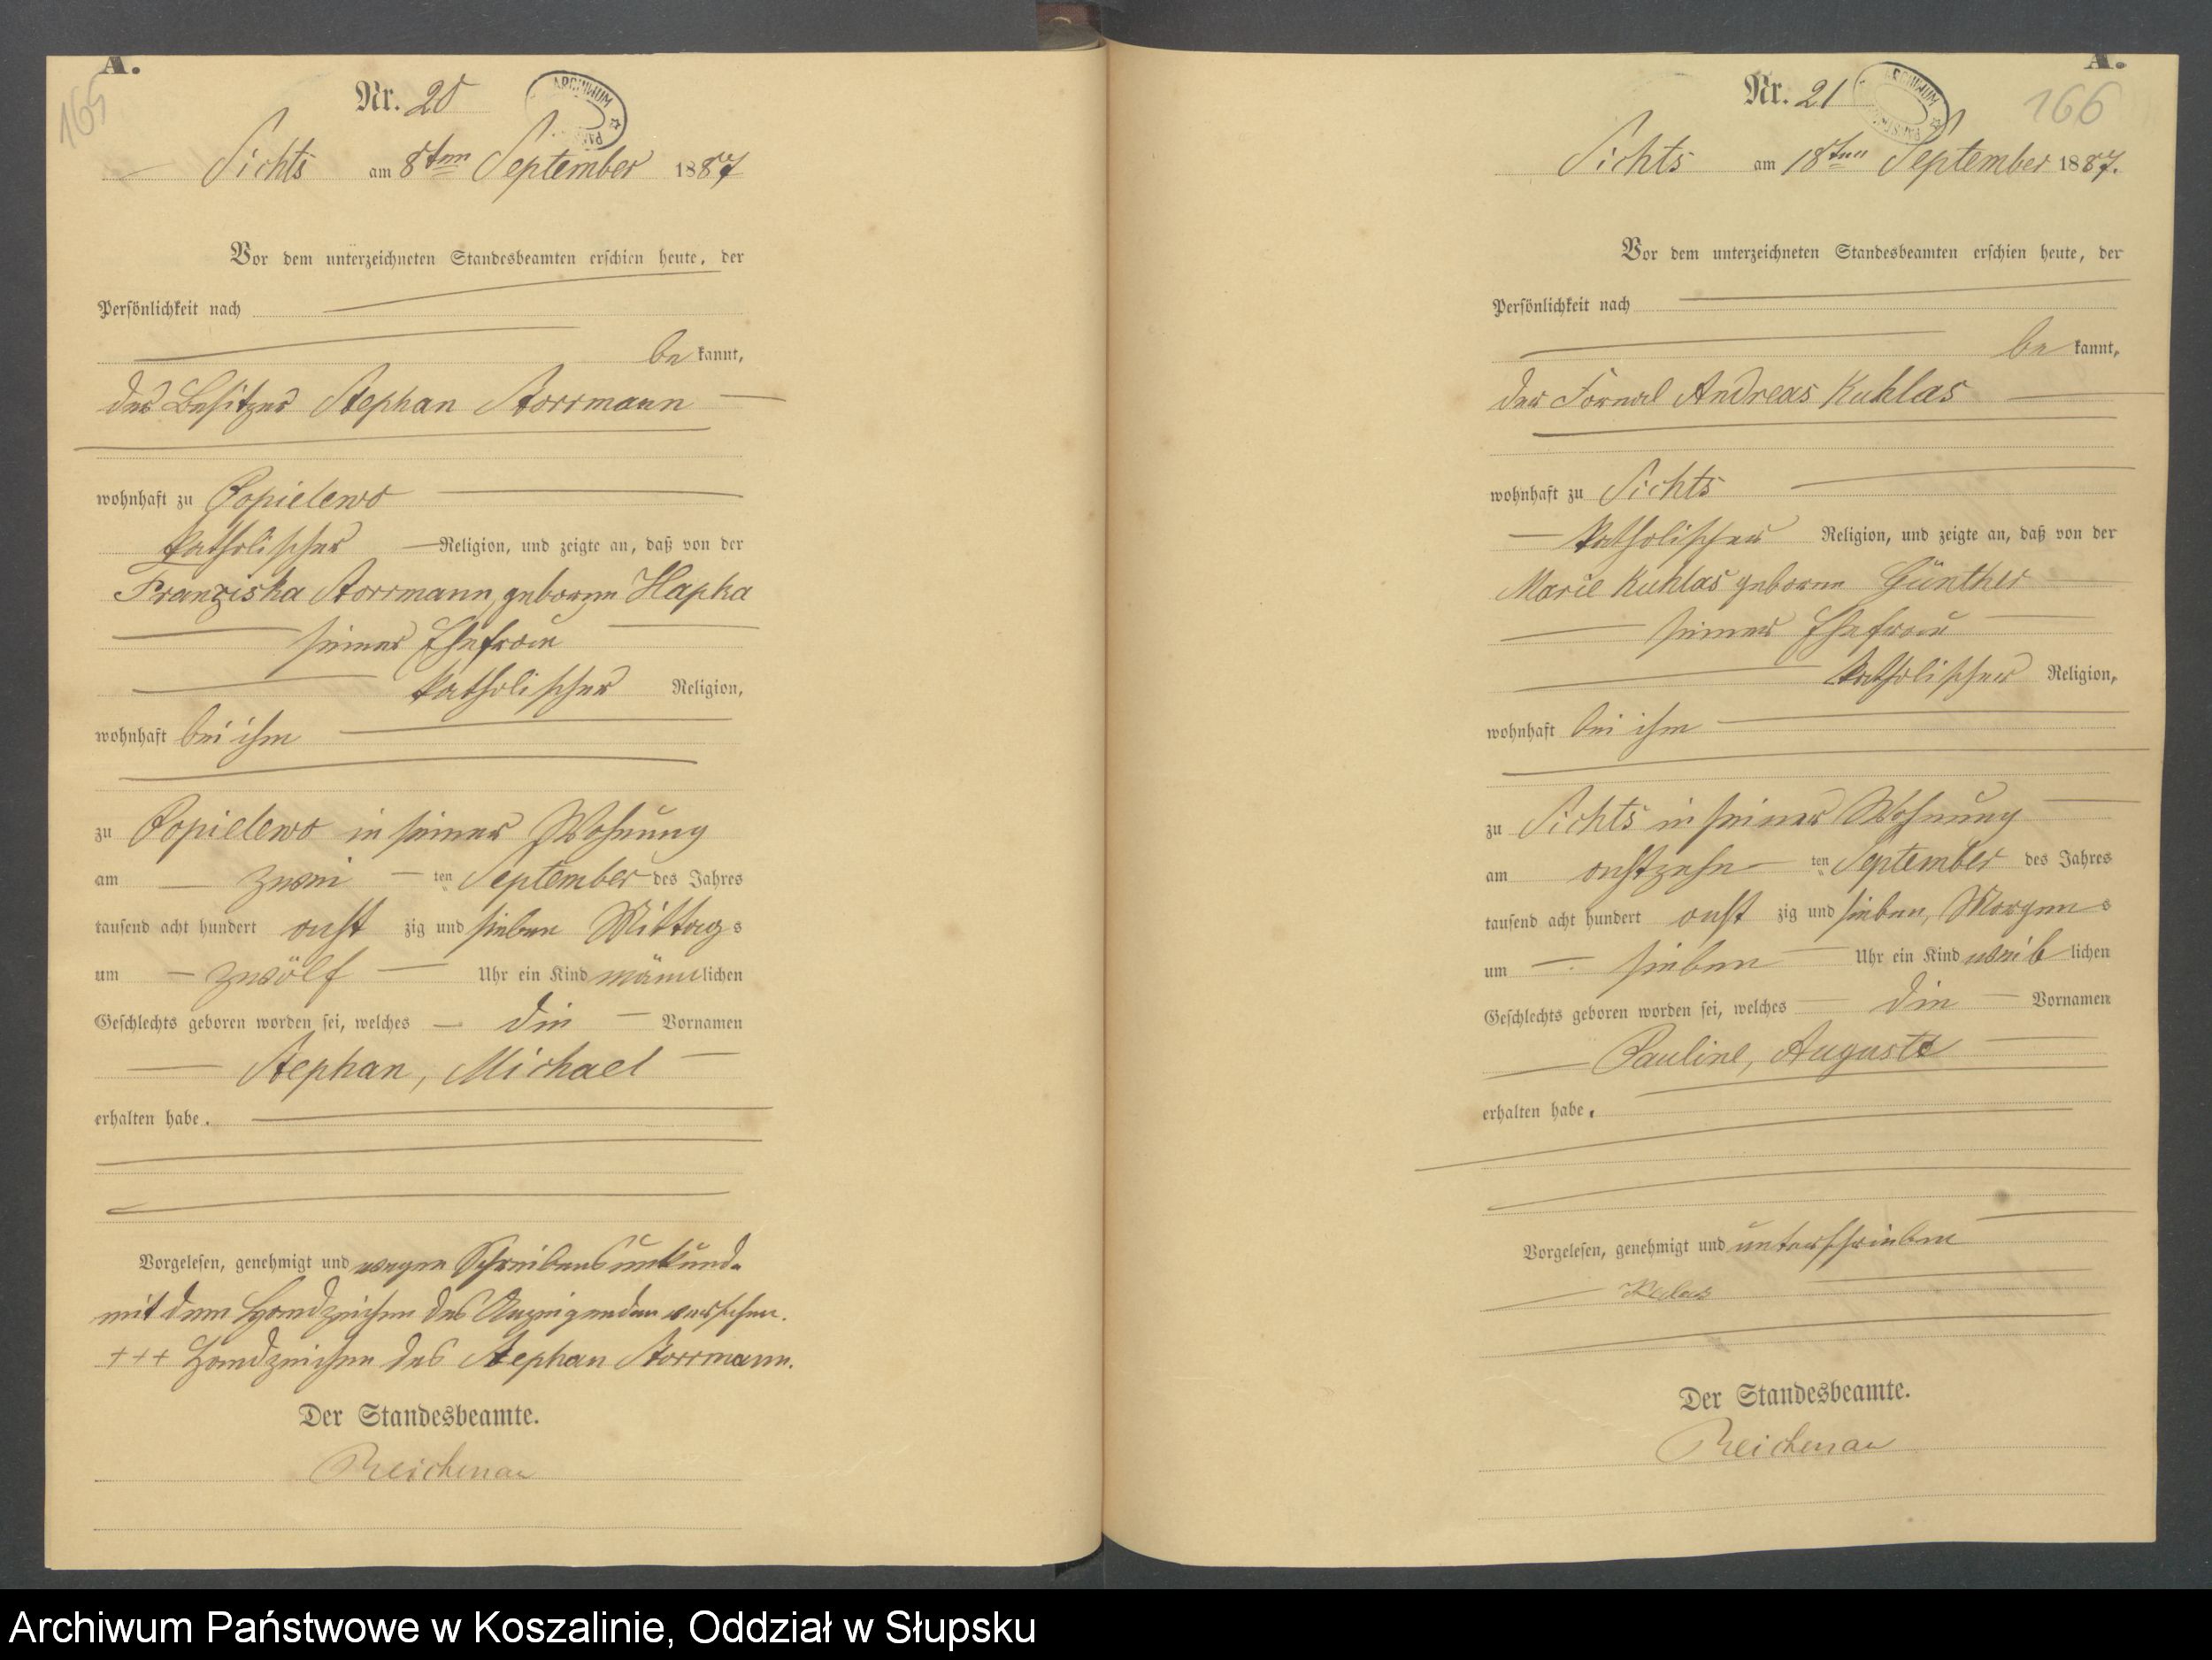 A.
165
Nr. 20
ARCHIWUM
Sichts am 8ten September 1887
Vor dem unterzeichneten Standesbeamten erschien heute, der
Persönlichkeit nach
bekannt,
der Besitzer Stephan Storrmann
wohnhaft zu Popielewo
katholischer Religion, und zeigte an, daß von der
Franziska Storrmann, geborene Hapka
seiner Ehefrau
katholischer Religion,
wohnhaft bei ihm
zu Popielewo in seiner Wohnung
am zwei ten September des Jahres
tausend acht hundert acht zig und sieben Mittags
um zwölf Uhr ein Kind männlichen
Geschlechts geboren worden sei, welches die Vornamen
Stephan, Michael
erhalten habe.
Vorgelesen, genehmigt und wegen Schreibensunkunde
mit dem Handzeichen des Anzeigenden versehen.
+++ Handzeichen des Stephan Storrmann.
Der Standesbeamte.
Reichenau
A.
166
Nr. 21
ARCHIWUM
Sichts am 18ten September 1887.
Vor dem unterzeichneten Standesbeamten erschien heute, der
Persönlichkeit nach
bekannt,
der Fornal Andreas Kuhlas
wohnhaft zu Sichts
katholischer Religion, und zeigte an, daß von der
Marie Kuhlas geborene Günther
seiner Ehefrau
katholischer Religion,
wohnhaft bei ihm
zu Sichts in seiner Wohnung
am achtzehn ten September des Jahres
tausend acht hundert acht zig und sieben, Morgens
um sieben Uhr ein Kind weiblichen
Geschlechts geboren worden sei, welches die Vornamen
Pauline, Auguste
erhalten habe.
Vorgelesen, genehmigt und unterschrieben
Der Standesbeamte.
Reichenau
Archiwum Państwowe w Koszalinie, Oddział w Słupsku